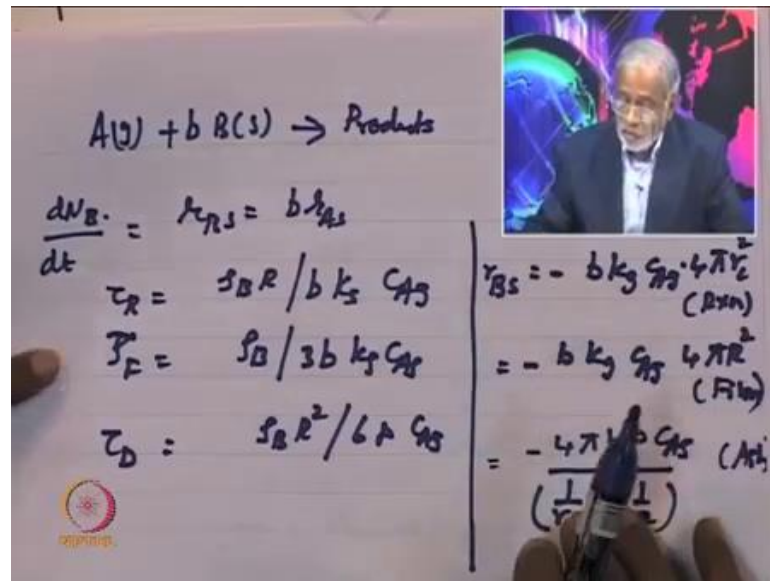 A(g) + b B(s) → Products
dN_B / dt = r_BS = b r_AS
τ_R = ρ_B R / b k_s C_Ag
τ_F = ρ_B / 3 b k_g C_Ag
τ_D = ρ_B R² / 6 D C_Ag
r_BS = - b k_g C_Ag · 4 π r_c²
(Rxn)
= - b k_g C_Ag 4 π R²
(Film)
= - 4 π C_Ag (Ash)